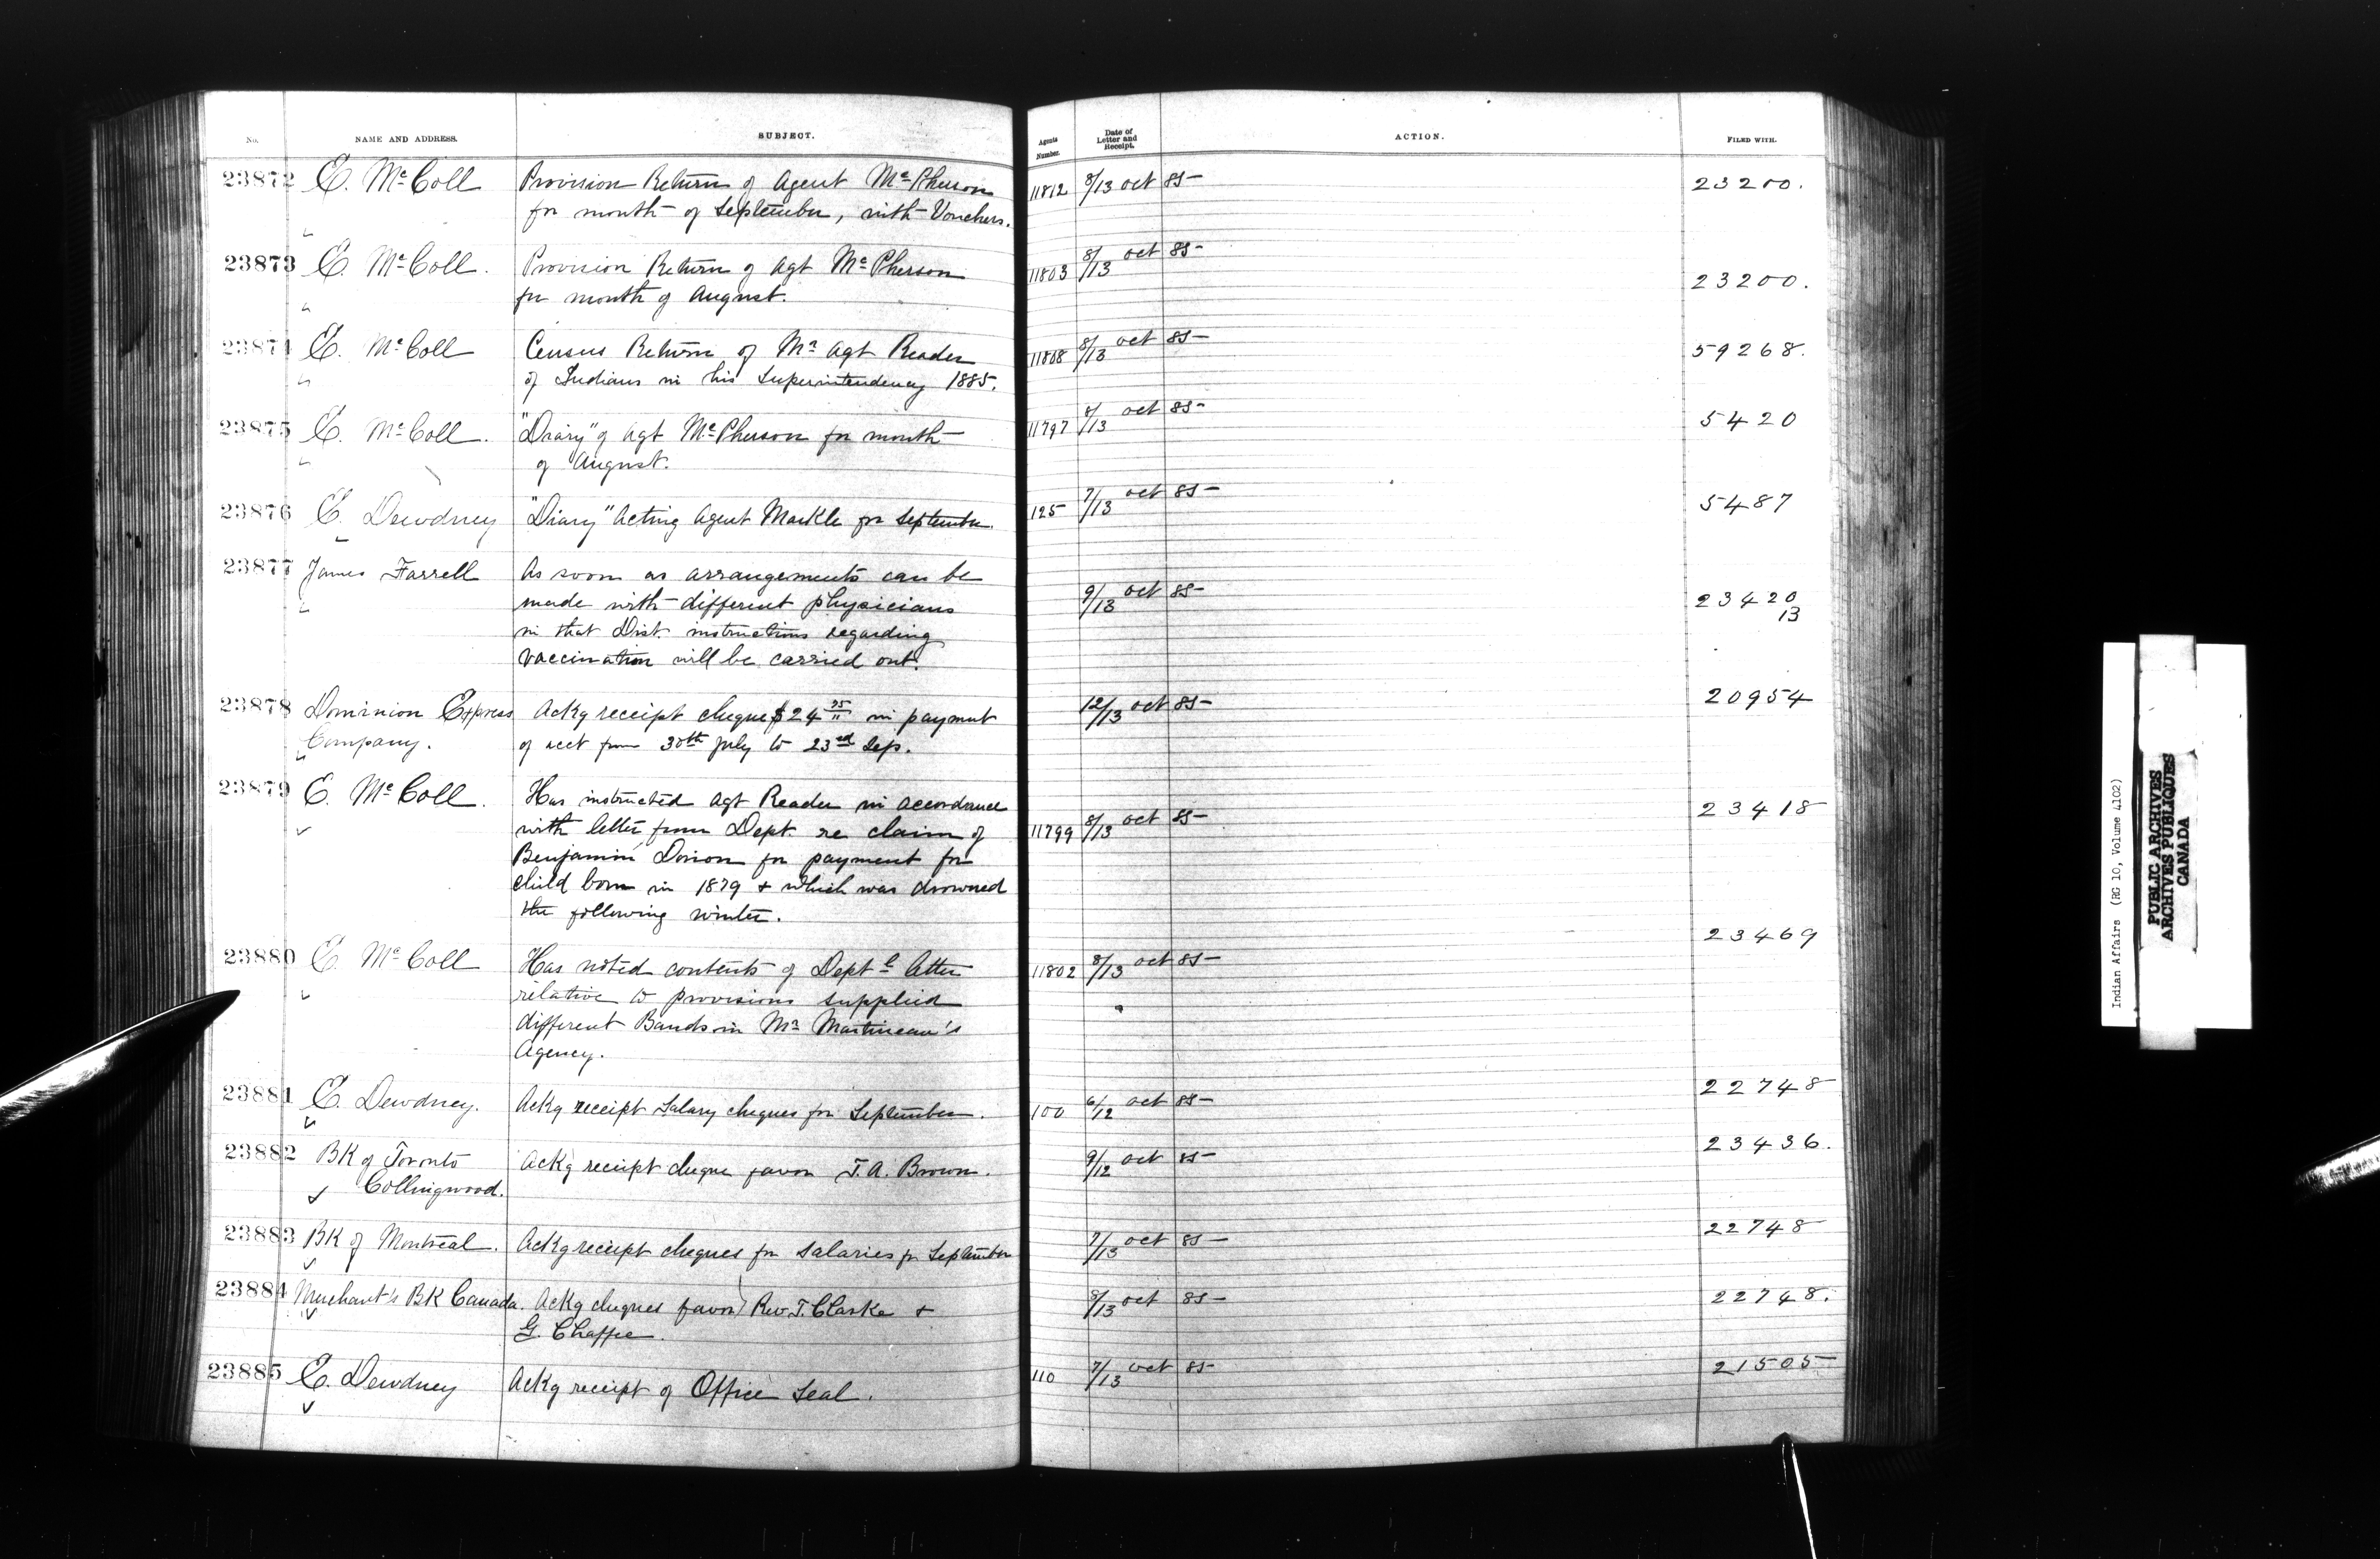 No. NAME AND ADDRESS. SUBJECT. Agents Number. Date of Letter and Receipt. ACTION. FILED WITH.
23872 E. McColl Provision Return of Agent McPherson 11812 8/13 oct 85 23200.
for month of September, with Vouchers.
23873 E. McColl. Provision Return of Agt McPherson 11803 8/13 oct 85 23200.
for month of August.
23874 E. McColl Census Return of Mr Agt Reader 11808 8/13 oct 85 59268.
of Indians in his Superintendency 1885.
23875 E. McColl. "Diary" of Agt McPherson for month 11797 8/13 oct 85 5420
of August.
23876 E. Dewdney "Diary" Acting Agent Markle for September. 125 7/13 oct 85 5487
23877 James Farrell As soon as arrangements can be
made with different physicians 9/13 oct 85 23420
13
in that Dist. instructions regarding
vaccination will be carried out.
23878 Dominion Express Ackg receipt cheque $24 75/" in payment 12/13 oct 85 20954
Company. of acct from 30th July to 23rd Sep.
23879 E. McColl. Has instructed Agt Reader in accordance 23418
with letter from Dept. re claim of 11799 8/13 oct 85
Benjamin Dorion for payment for
child born in 1879 + which was drowned
the following winter.
23880 E. McColl Has noted contents of Deptl letter 11802 8/13 oct 85 23469
relative to provisions supplied
different Bands in Mr Martineau's
Agency.
23881 E. Dewdney. Ackg receipt Salary cheques for September. 100 6/12 oct 85 22748
23882 BK of Toronto Ackg receipt cheque favor T.A. Brown. 9/12 oct 85 23436.
Collingwood.
23883 BK of Montreal. Ackg receipt cheques for salaries for September 7/13 oct 85 22748
23884 Merchant's BK Canada. Ackg cheques favor Rev T. Clarke + 8/13 oct 85 22748.
G. Chaffee.
23885 E. Dewdney Ackg receipt of Office Seal. 110 7/13 oct 85 21505
Indian Affairs (RG 10, Volume 4102)
PUBLIC ARCHIVES
ARCHIVES PUBLIQUES
CANADA